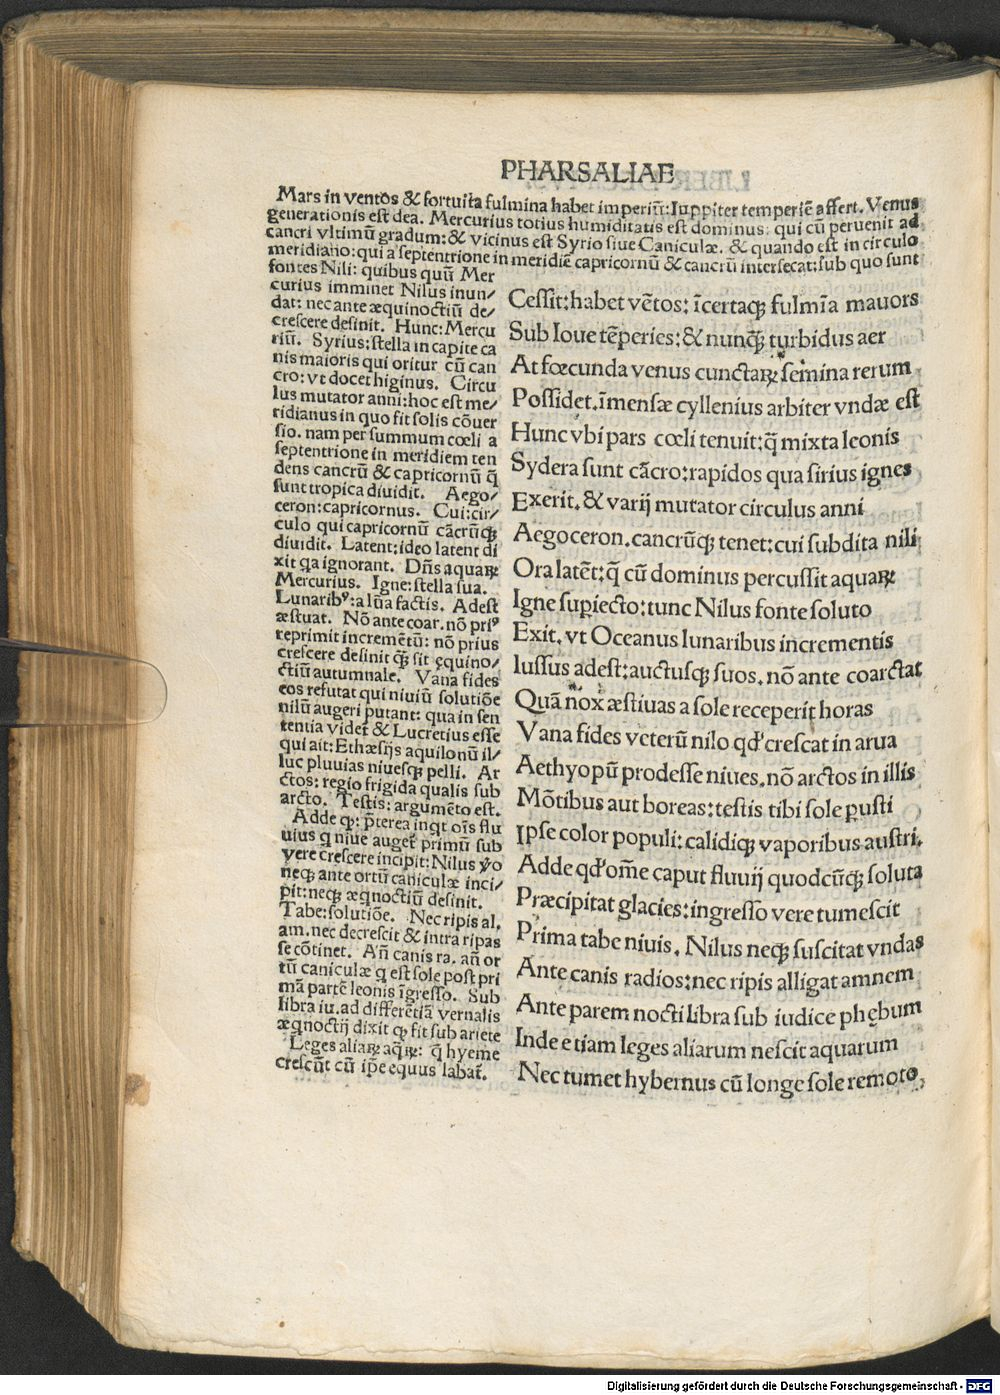 PHARSALIAE
Mars in ventos & fortuita fulmina habet imperiũ: Iuppiter temperiẽ affert. Venus
generationis est dea. Mercurius totius humiditatis est dominus: qui cũ peruenit ad
cancri vltimũ gradum: & vicinus est Syrio siue Caniculæ. & quando est in circulo
meridiano: qui a septentrione in meridiẽ capricornũ & cancrũ intersecat: sub quo sunt
fontes Nili: quibus quũ Mer
curius imminet Nilus inun/
dat: nec ante æquinoctiũ de/
crescere desinit. Hunc: Mercu
riũ. Syrius: stella in capite ca
nis maioris qui oritur cũ can
cro: vt docet higinus. Circu
lus mutator anni: hoc est me/
ridianus in quo fit solis cõuer
sio. nam per summum cœli a
septentrione in meridiem ten
dens cancrũ & capricornũ q̃
sunt tropica diuidit. Aego/
ceron: capricornus. Cui: cir/
culo qui capricornũ cãcrũqꝫ
diuidit. Latent: ideo latent di
xit qa ignorant. Dñs aquaꝝ
Mercurius. Igne: stella sua.
Lunaribꝰ: a lũa factis. Adest
æstuat. Nõ ante coar. nõ priꝰ
reprimit incremẽtũ: nõ prius
crescere desinit qꝫ̃ sit ęquino/
ctiũ autumnale. Vana fides
eos refutat qui niuiũ solutiõe
nilũ augeri putant: qua in sen
tentia videt̃ & Lucretius esse
qui ait: Ethæsijs aquilonũ il/
luc pluuias niuesqꝫ pelli. Ar
ctos: regio frigida qualis sub
arcto. Testis: argumẽto est.
Adde ꝙ: p̃terea inqt oĩs flu
uius q niue auget̃ primũ sub
vere crescere incipit: Nilus v̊o
neqꝫ ante ortũ caniculæ inci/
pit: neqꝫ æqnoctiũ desinit.
Tabe: solutiõe. Nec ripis al.
am. nec decrescit & intra ripas
se cõtinet. Añ canis ra. añ or
tũ caniculæ q est sole post pri
mã partẽ leonis ĩgresso. Sub
libra iu. ad differẽtiã vernalis
æqnoctij dixit ꝙ fit sub ariete
Leges aliaꝝ aq̃ꝝ: q̃ hyeme
crescũt cũ ip̃e equus labat̃.
Cessit: habet vẽtos: ĩcertaqꝫ fulmĩa mauors
Sub Ioue tẽperies: & nunqꝫ̃ turbidus aer
At fœcunda venus cunctaꝝ semina rerum
Possidet. ĩmensæ cyllenius arbiter vndæ est
Hunc vbi pars cœli tenuit: q̃ mixta leonis
Sydera sunt cãcro: rapidos qua sirius ignes
Exerit. & varij mutator circulus anni
Aegoceron. cancrũqꝫ tenet: cui subdita nili
Ora latẽt: q̃ cũ dominus percussit aquaꝝ
Igne supiecto: tunc Nilus fonte soluto
Exit. vt Oceanus lunaribus incrementis
Iussus adest: auctusqꝫ suos. nõ ante coarctat
Quã nox æstiuas a sole receperit horas
Vana fides veterũ nilo qđ crescat in arua
Aethyopũ prodesse niues. nõ arctos in illis
Mõtibus aut boreas: testis tibi sole pusti
Ipse color populi: calidiqꝫ vaporibus austri.
Adde qđ om̃e caput fluuij quodcũqꝫ soluta
Præcipitat glacies: ingresso vere tumescit
Prima tabe niuis. Nilus neqꝫ suscitat vndas
Ante canis radios: nec ripis alligat amnem
Ante parem nocti libra sub iudice phębum
Inde etiam leges aliarum nescit aquarum
Nec tumet hybernus cũ longe sole remoto,
Digitalisierung gefördert durch die Deutsche Forschungsgemeinschaft - DFG